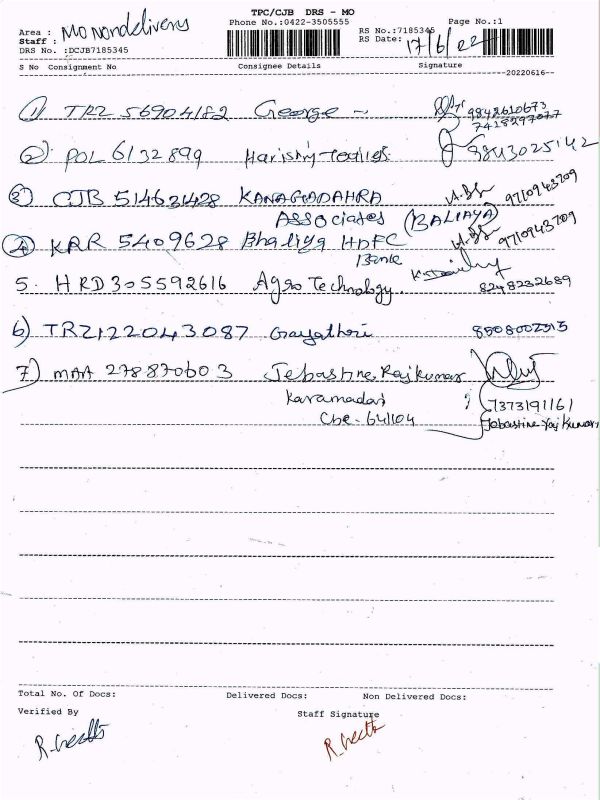 TPC/CJB DRS - MO
Phone No.:0422-3505555
Area : MO nondelivery
Staff :
DRS No. :DCJB7185345
RS No.:7185345 Page No.:1
RS Date: 17/6/22
S No Consignment No Consignee Details Signature
20220616
1) TRZ 56904182 George
9842610673
7418297077
2) POL 6132899 Harishiy Textiles 9843025142
3) CJB 51463428 KANAGODAHRA 9710943709
Associates (BALIAYA)
4) KRR 5409628 Bhaliya HDFC 9710943709
Bank
5. HRD305592616 Agro Technology. 8248232689
6) TRZ122043087 Gayathri 8508002515
7) MAA 278870603 Jebastine Rajkumar
Karamadai 7373191161
Cbe - 641104 Jebastine raj kumar
Total No. Of Docs: Delivered Docs: Non Delivered Docs:
Verified By Staff Signature